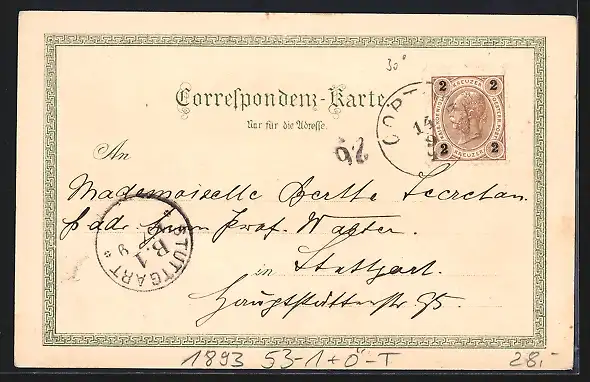 30
Correspondenz-Karte
Nur für die Adresse.
26
GÖRZ
14
2 KREUZER 2
2 KREUZER 2
An
Mademoiselle Berthe Secretan.
p. adr. Prof. Walter.
in Stuttgart.
Hauptstätterstr 95.
STUTTGART
B.1
9
1893 53-1+Ö-T
28.-